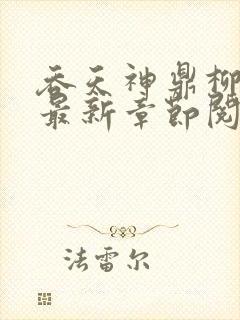 吞天神鼎柳
最新章节阅
法雷尔